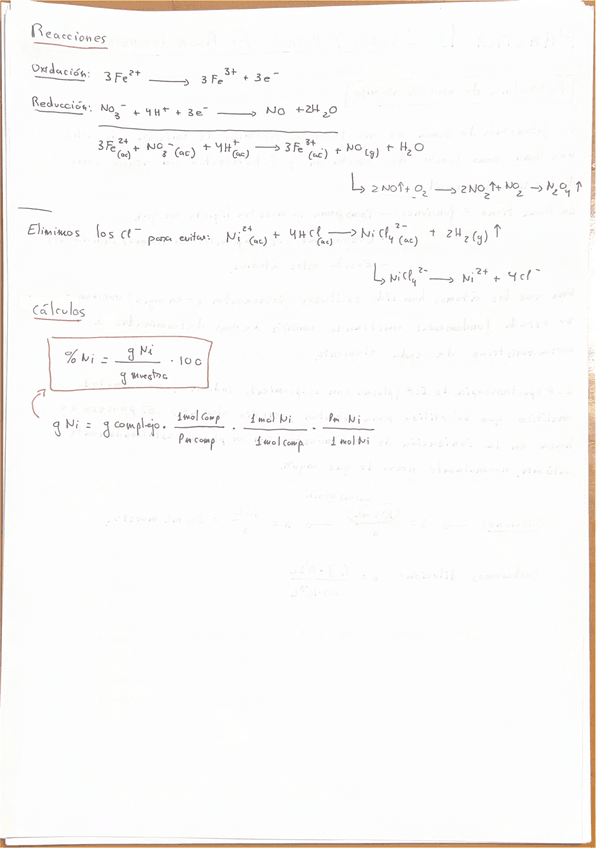 Reacciones
Oxidación: 3Fe²⁺ ⟶ 3Fe³⁺ + 3e⁻
Reducción: NO₃⁻ + 4H⁺ + 3e⁻ ⟶ NO + 2H₂O
3Fe²⁺(ac) + NO₃⁻(ac) + 4H⁺(ac) ⟶ 3Fe³⁺(ac) + NO(g) + H₂O
↳ 2NO↑ + O₂ ⟶ 2NO₂↑ + NO₂ ⟶ N₂O₄↑
Elimimos los Cl⁻ para evitar: Ni²⁺(ac) + 4HCl(ac) ⟶ NiCl₄²⁻(ac) + 2H₂(g)↑
↳ NiCl₄²⁻ ⟶ Ni²⁺ + 4Cl⁻
Cálculos
% Ni = g Ni / g muestra · 100
g Ni = g complejo · 1 mol comp / Pm comp · 1 mol Ni / 1 mol comp · Pm Ni / 1 mol Ni